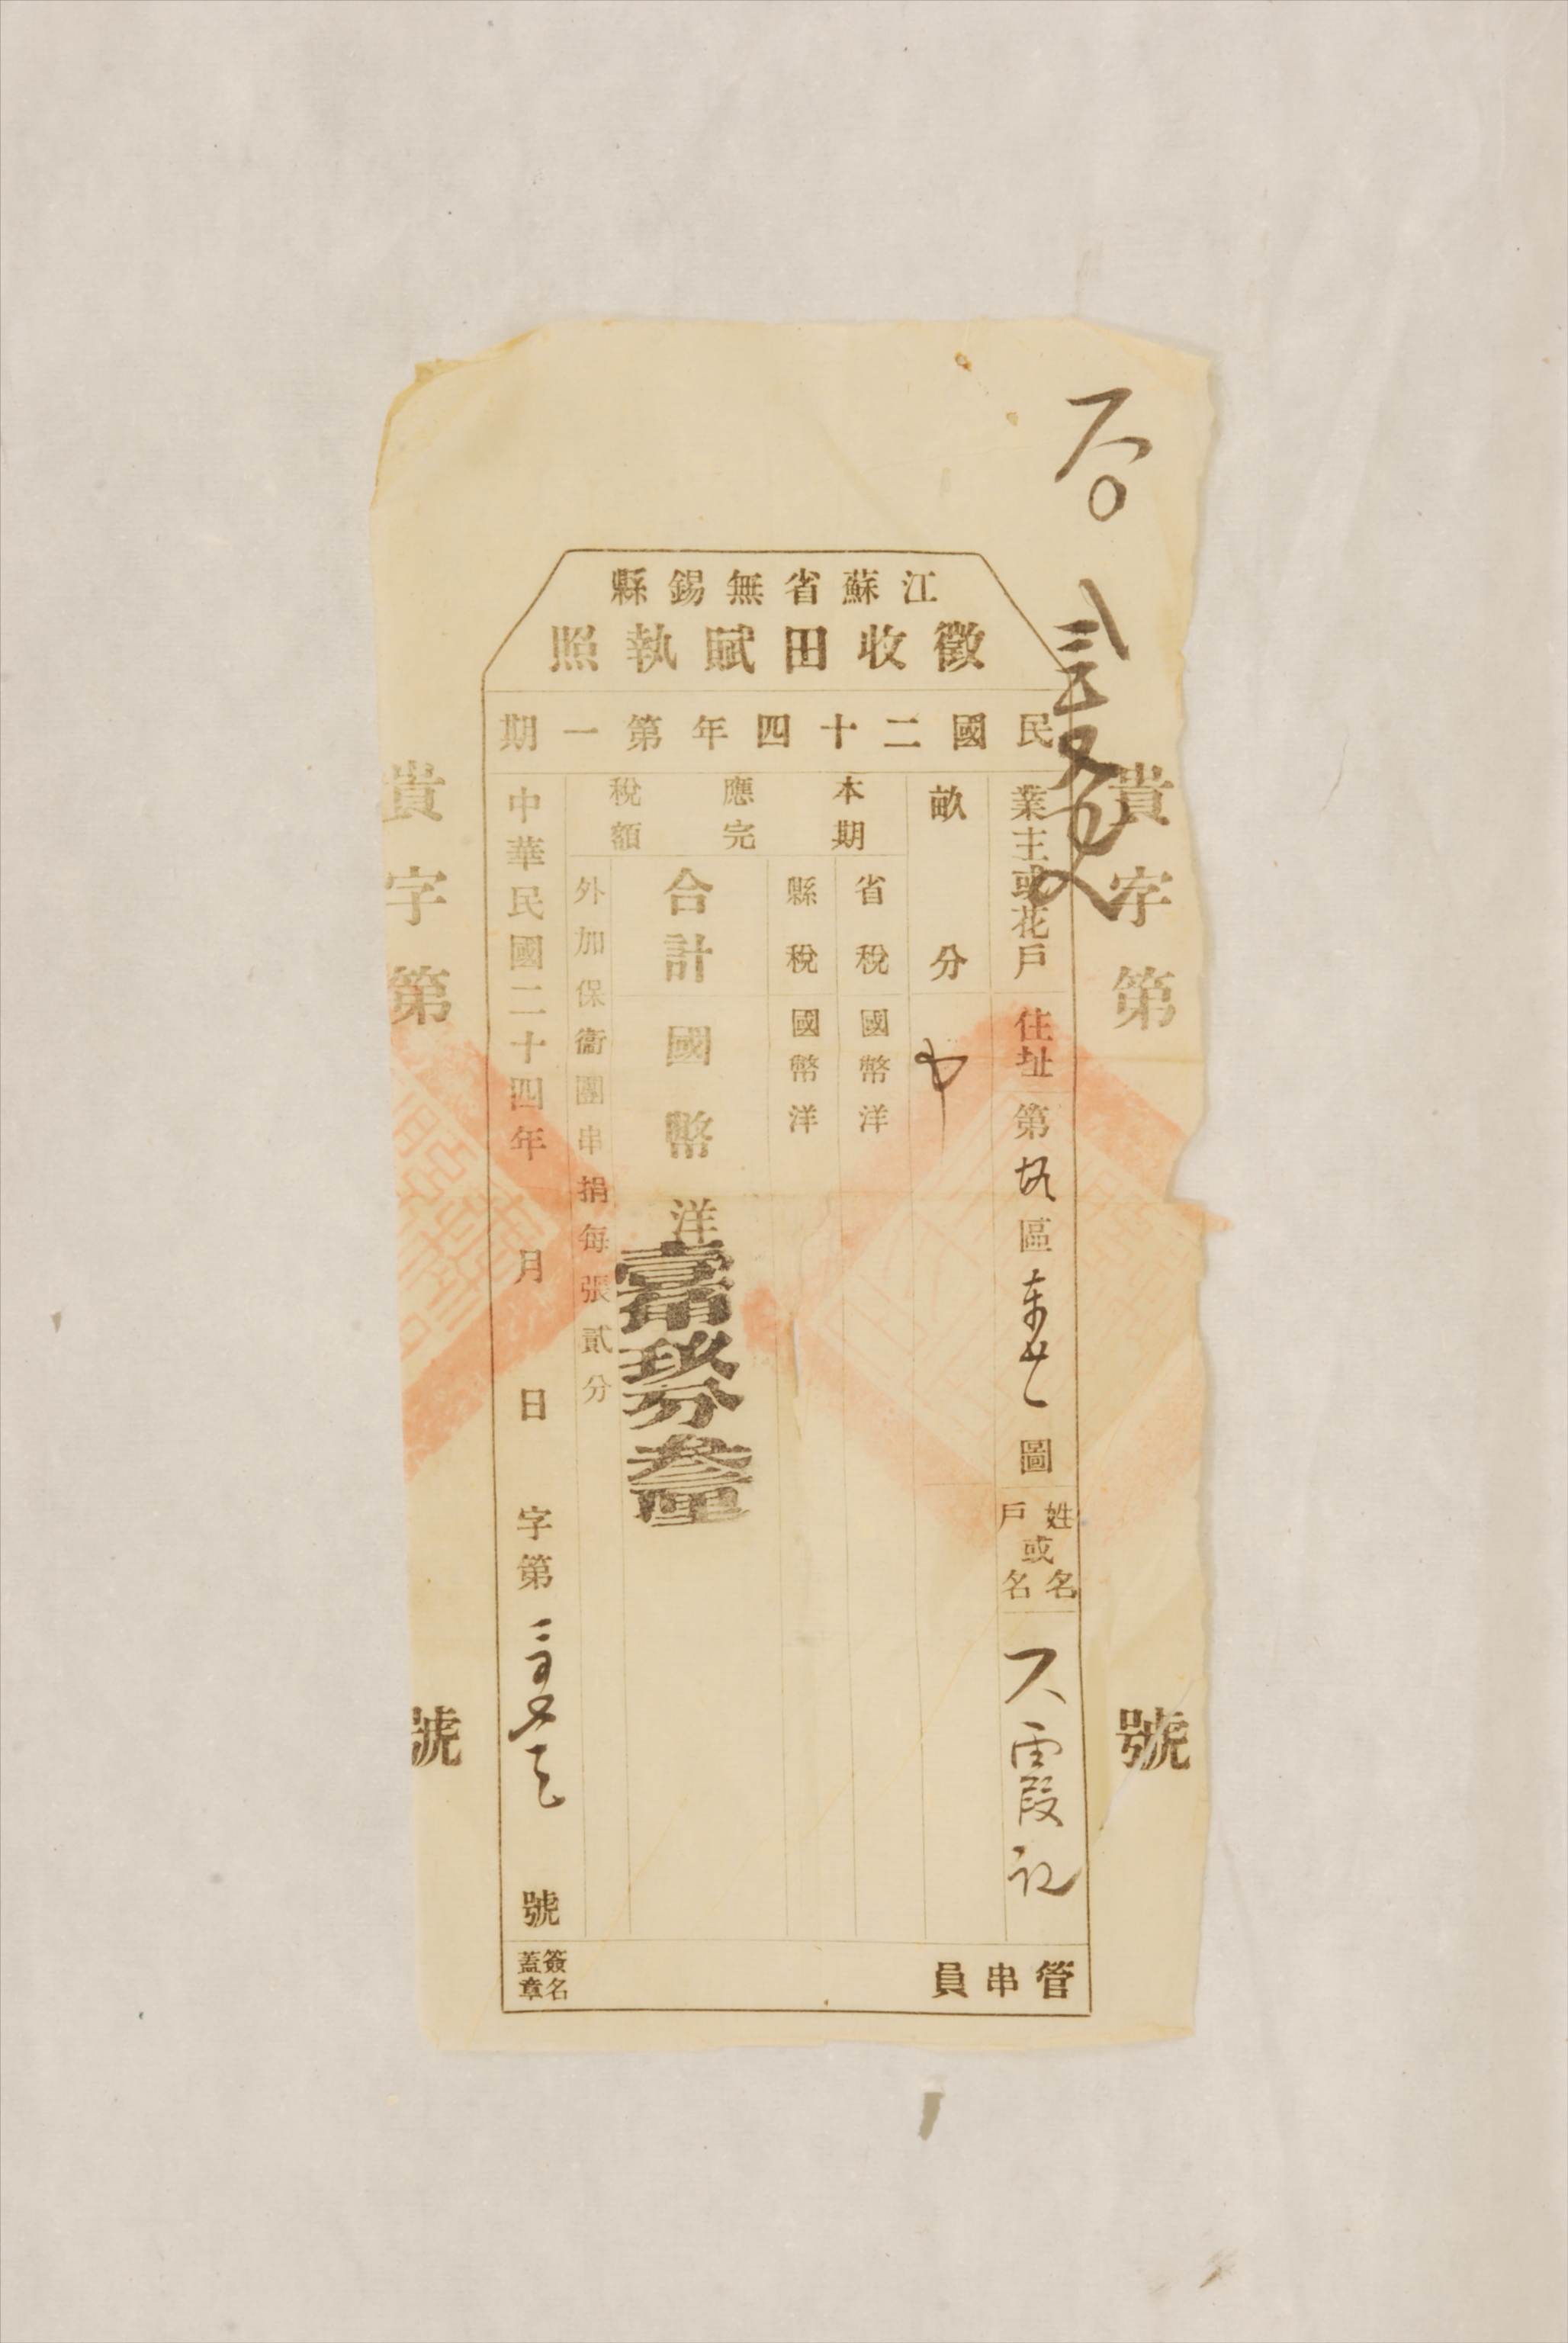 江蘇省無錫縣
徵收田賦執照
民國二十四年第一期
貴字第
號
業主或花戶
住址
第
區
圖
姓名或戶名
霞記
畝分
本期應完稅額
省稅國幣洋
縣稅國幣洋
合計國幣洋壹角玖分叁厘
外加保衞團串捐每張貳分
中華民國二十四年 月 日 字第
號
管串員
簽名蓋章
貴字第
號